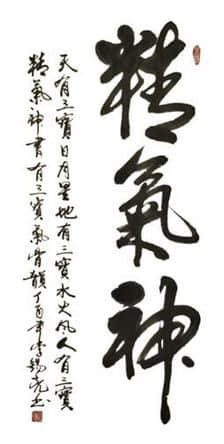 精氣神
天有三寶日月星地有三寶水火風人有三寶
精氣神書有三寶氣骨韻丁酉年李錫亮書